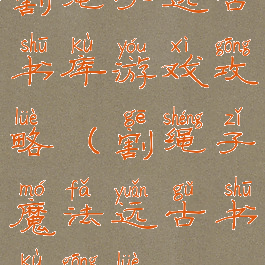 远 古
shū kù yóu xì gōng
书 库 游 戏 攻
lüè gē shéng zǐ
略 ( 割 绳 子
mó fǎ yuǎn gǔ shū
魔 法 远 古 书
kù gōng lüè